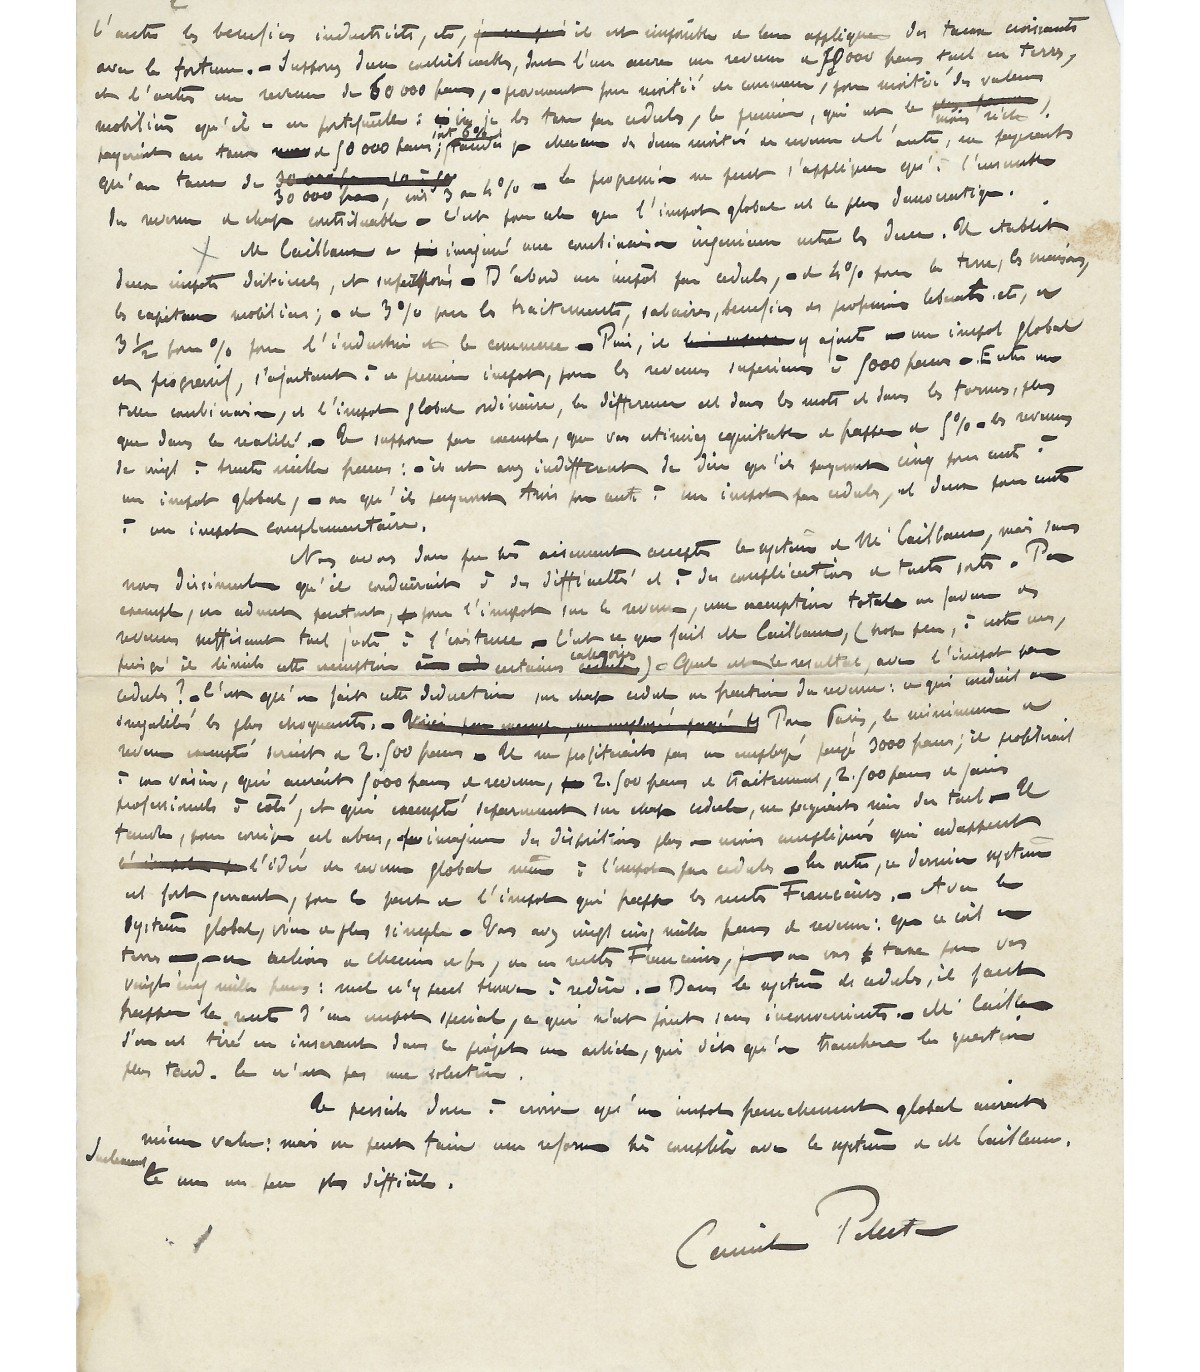 2
l'autre les bénéfices industriels, etc, il est impossible de leur appliquer des taux croissants
avec la fortune. - Supposez deux contribuables, dont l'un aura un revenu de 50000 francs tout en terres,
et l'autre un revenu de 60 000 francs, - provenant pour moitié du commerce, pour moitié des valeurs
mobilières qu'il a en portefeuille : si je les taxe par cédules, le premier, qui est le moins riche,
payerait au taux de 50 000 francs, soit 6% ; tandis que chacune des deux moitiés du revenu de l'autre, ne payerait
qu'au taux de 30 000 francs, soit 3 ou 4% - La progression ne peut s'appliquer qu'à l'ensemble
du revenu de chaque contribuable - C'est pour cela que l'impôt global est le plus démocratique.
M Caillaux a imaginé une combinaison ingénieuse entre les deux. Il établit
deux impôts distincts, et superposés - D'abord un impôt par cédules, - de 4% pour la terre, les maisons,
les capitaux mobiliers ; - de 3% pour les traitements, salaires, bénéfices des professions libérales, etc, de
3 1/2 pour % pour l'industrie et le commerce - Puis, il y ajoute un impôt global
et progressif, s'ajoutant à ce premier impôt, pour les revenus supérieurs à 5000 francs - Entre une
telle combinaison, et l'impôt global ordinaire, la différence est dans les mots et dans les formes, plus
que dans la réalité. - Je suppose par exemple, que vous estimiez équitable de frapper de 5% - les revenus
de vingt à trente mille francs : - il est assez indifférent de dire qu'ils payeront cinq pour cent à
un impôt global, - ou qu'ils payeront trois pour cent à un impôt par cédules, et deux pour cent
à un impôt complémentaire.
Nous avons donc pu très aisément accepter le système de M Caillaux, mais sans
nous dissimuler qu'il conduirait à des difficultés et à des complications de toutes sortes - Par
exemple, on admet partout, pour l'impôt sur le revenu, une exemption totale en faveur des
revenus suffisant tout juste à l'existence - C'est ce que fait M Caillaux, (trop peu, à notre avis,
puisqu'il limite cette exemption à certaines catégories) - Quel est le résultat, avec l'impôt par
cédules ? - C'est qu'on fait cette déduction sur chaque cédule ou fraction du revenu : ce qui conduit aux
inégalités les plus choquantes. - Pour Paris, le minimum de
revenu exempté serait de 2.500 francs - Il ne profiterait pas un employé payé 3000 francs ; il profiterait
à un voisin, qui aurait 5000 francs de revenu, 2.500 francs de traitement, 2.500 francs de gains
professionnels à côté, et qui exempté séparément sur chaque cédule, ne payerait rien du tout - Il
faudra, pour corriger cet abus, imaginer des dispositions plus ou moins compliquées qui adaptent
l'idée du revenu global même à l'impôt par cédules - En outre, ce dernier système
est fort gênant, pour le point de l'impôt qui frappe les rentes Françaises. - Avec le
système global, rien de plus simple - Vous avez vingt cinq mille francs de revenu : que ce soit en
terres, en actions de chemin de fer, ou en rentes Françaises, on vous taxe pour vos
vingt cinq mille francs : nul n'y peut trouver à redire. - Dans le système des cédules, il faut
frapper la rente d'un impôt spécial, ce qui n'est point sans inconvénients. - M Caillaux
s'en est tiré en insérant dans le projet un article, qui dit qu'on tranchera la question
plus tard. Ce n'est pas une solution.
Je persiste donc à croire qu'un impôt franchement global aurait
mieux valu : mais on peut faire une réforme très complète avec le système de M Caillaux.
Seulement
Ce sera un peu plus difficile.
Camille Pelletan